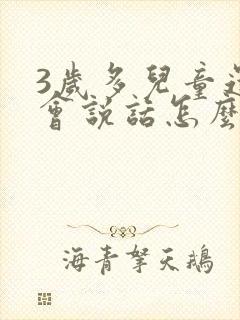 3歲多兒童
會說話怎麼
海青拏天鵝